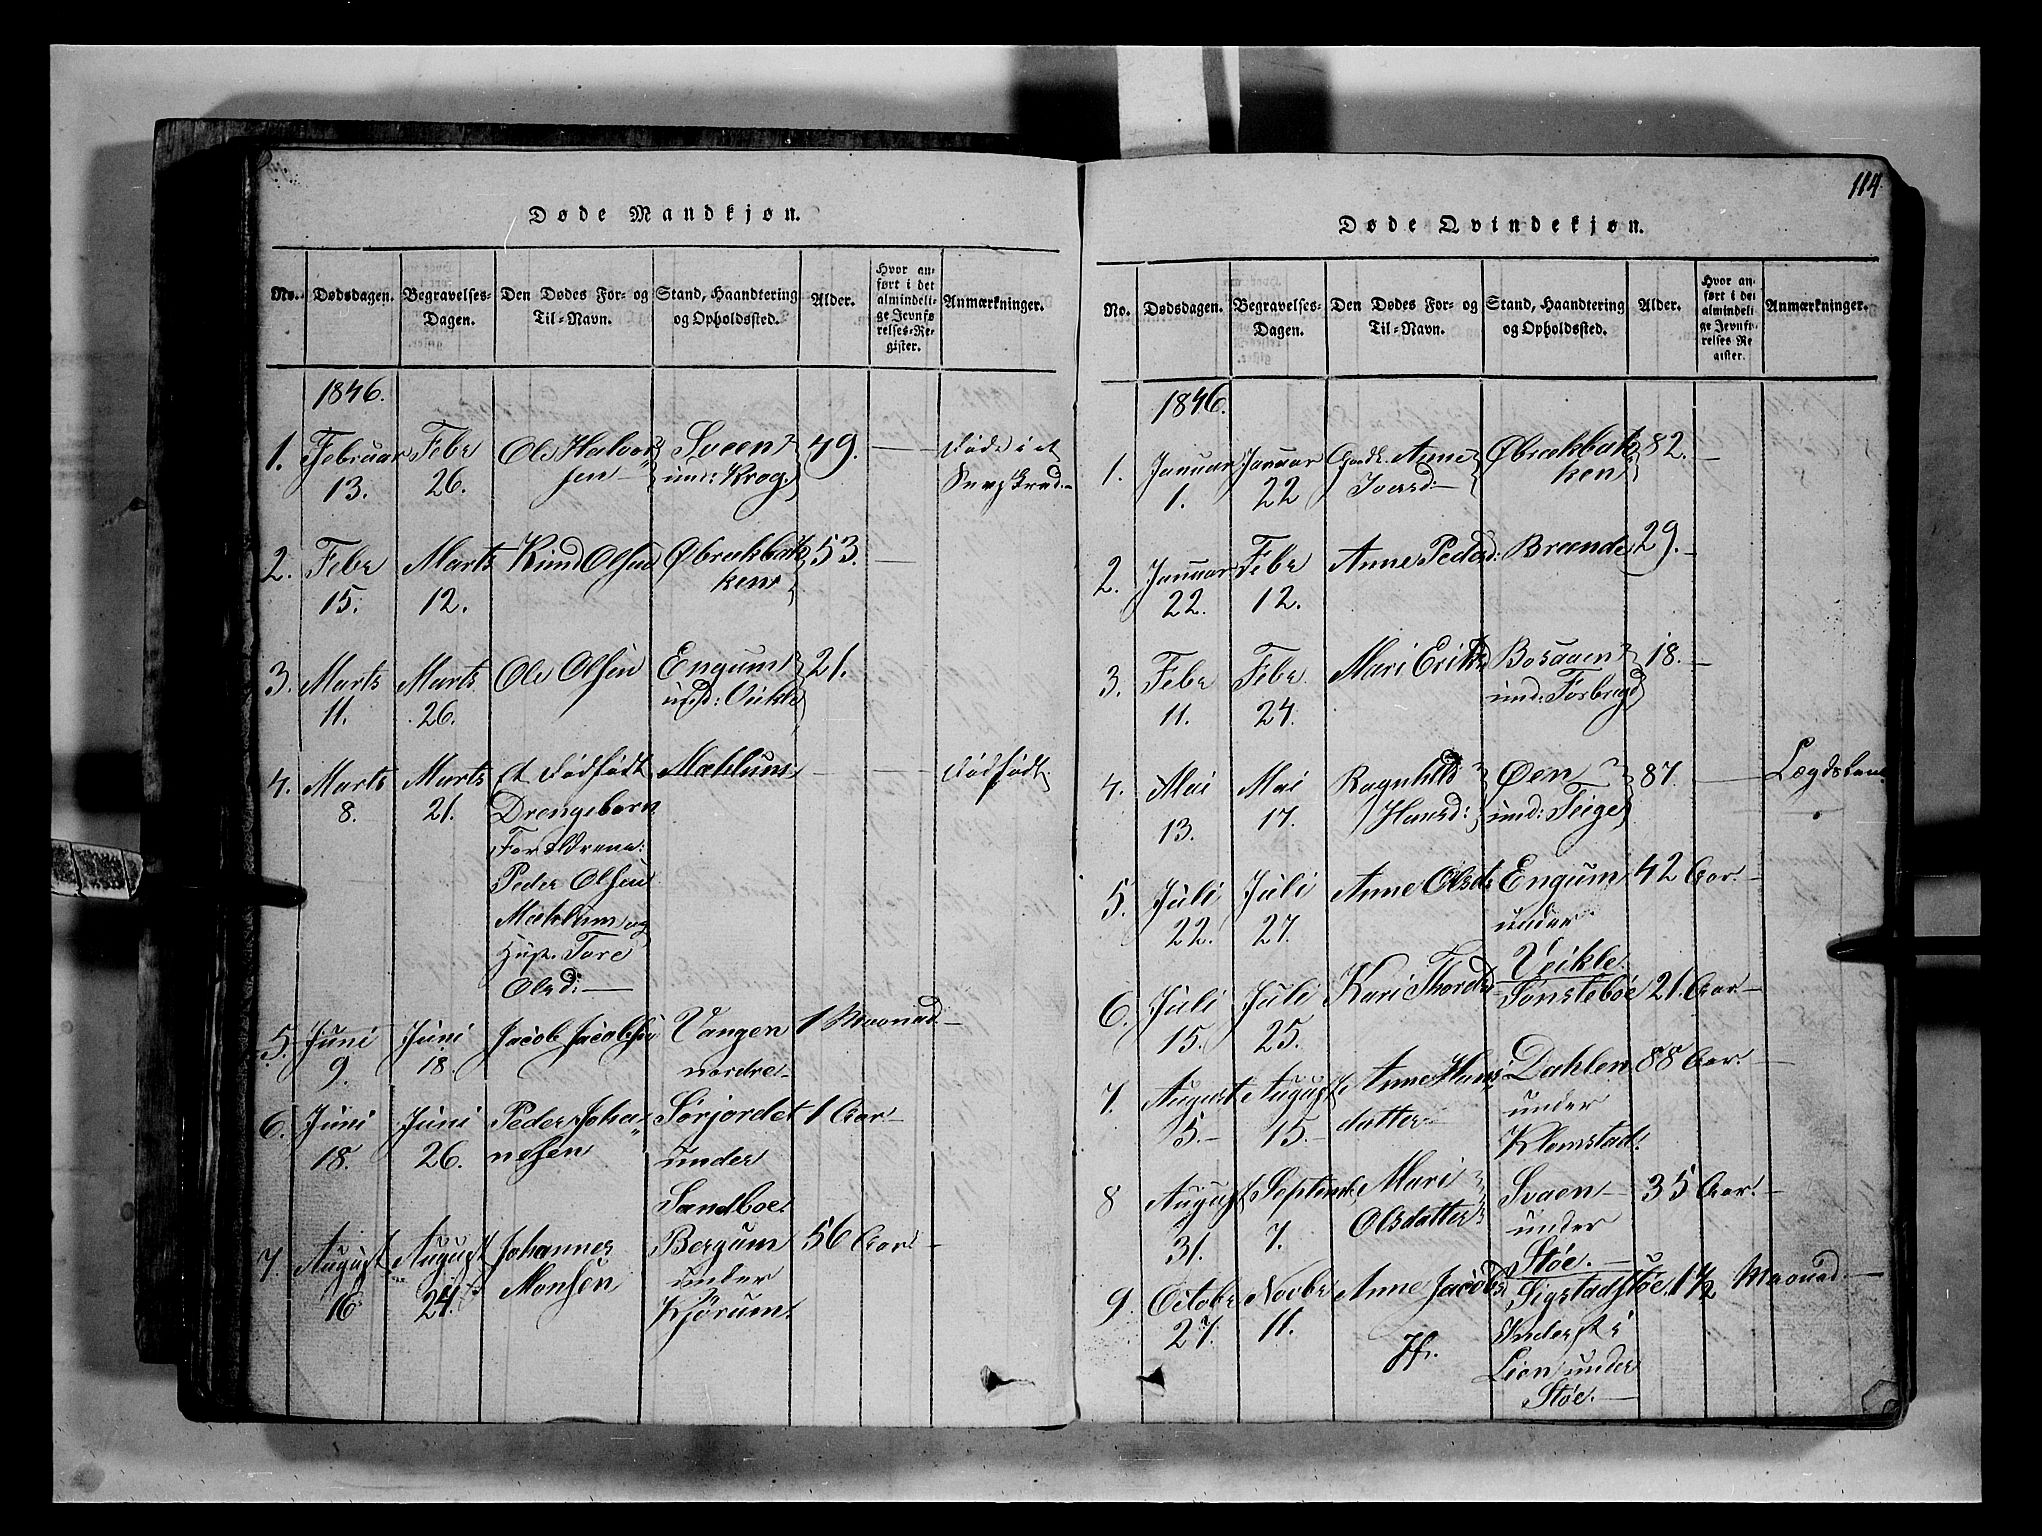 114.
Døde Mandkjøn.
No. Dødsdagen. Begravelses-Dagen. Den Dødes For- og Til-Navn. Stand, Haandtering og Opholdssted. Alder. Hvor anført i det almindelige Jevnførelses-Register. Anmærkninger.
1846.
1. Februar Febr Ole Halvor Sveen 49. — Døde i et
13. 26. sen — und: Krog.
2. Febr Marts Olsen Øbrækbak 53. —
15. 12. ken
3. Marts Marts Ole Olsen Engum 21.
11. 26. und: Veikle
4. Marts Marts et dødfødt Mæhlum — — dødfødt
8. 21. Drengebarn
Forældrene:
Peder Olsen
Mæhlum og
Hust. Tore
Olsd: —
5. Juni Juni Jacob Jacobsen Vangen 1 Maaned —
9. 18. nordre
6. Juni Juni Peder Joha Sørjordet 1 Aar —
18. 26. nesen under
Sandboe.
7. August August Johannes Bergum 56 Aar —
16. 24. Monsen under
Kjørum.
Døde Qvindekjøn.
No. Dødsdagen. Begravelses-Dagen. Den Dødes For- og Til-Navn. Stand, Haandtering og Opholdssted. Alder. Hvor anført i det almindelige Jevnførelses-Register. Anmærkninger.
1846.
1. Januar Januar Anne Øbrækbak 82. —
1. 22 Iversd — ken
2. Januar Febr Anne Pedsd: Brænde 29. —
22. 12.
3. Febr Febr Mari Eriksd Bosaaen 18. —
11. 24. und: Forbregd
4. Mai Mai Ragnhild Øen 87. —
13. 17. Hansd: und: Teige
5. Juli Juli Anne Olsd: Engum 42 Aar —
22. 27. under
Veikle.
6. Juli Juli Kari Thordsd Sønsteboe 21. Aar —
15. 25.
7. August August Anne Hans Dahlen 88 Aar —
5. — 15. — datter — under
Klomstad.
8 August Septemb. Mari Svaen — 35 Aar. —
31. 7. Olsdatter under
Støe. —
9. Octobr Novbr Anne Jacobsd Sigstadstøe. 1 1/2 Maaned —
27. 11. Inderst i
Lien under
Støe. —